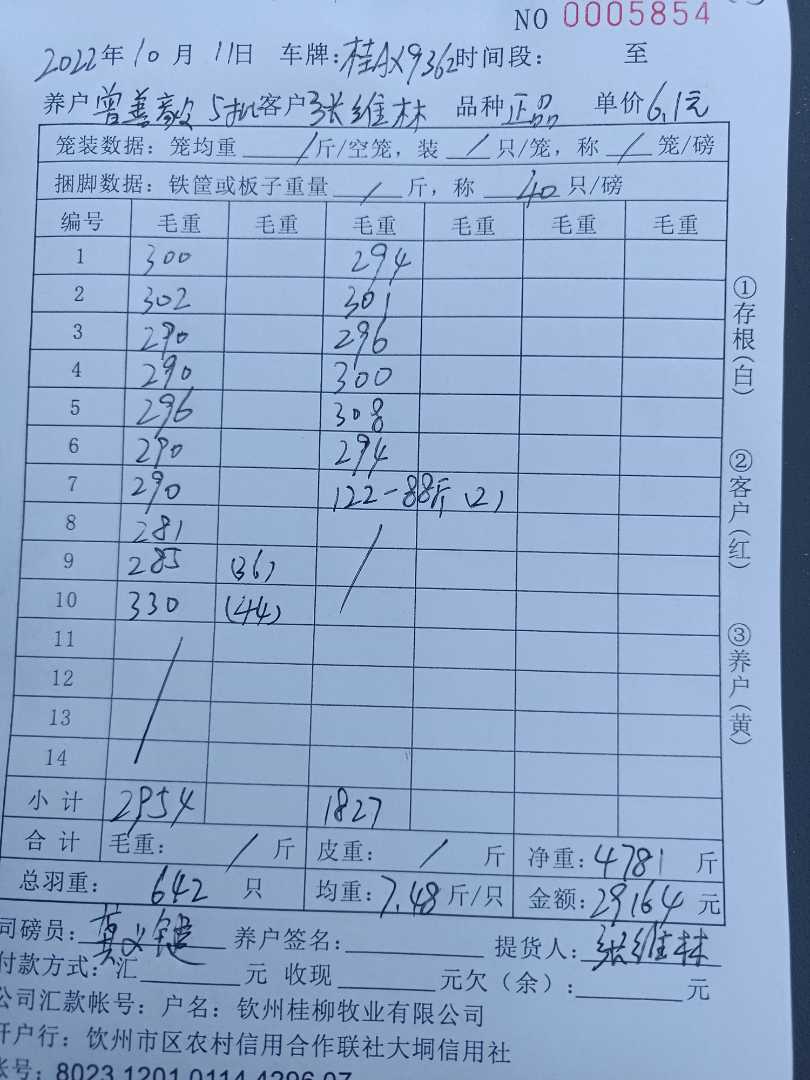 NO 0005854
2022年10月11日 车牌:桂AX9362时间段: 至
养户曾善毅 5扒客户张维林 品种正品 单价6.1元
笼装数据:笼均重 / 斤/空笼,装 / 只/笼,称 / 笼/磅
捆脚数据:铁筐或板子重量 / 斤,称 40只/磅
编号 毛重 毛重 毛重 毛重 毛重 毛重
1 300 294
2 302 301
3 290 296
4 290 300
5 296 308
6 290 294
7 290 122-88斤(2)
8 281 /
9 285 (36)
10 330 (44)
11 /
12
13
14
小计 2954 1827
合计 毛重: / 斤 皮重: / 斤 净重:4781斤
总羽重: 642 只 均重:7.48斤/只 金额:29164元
司磅员: 养户签名: 提货人:张维林
付款方式:汇 元 收现 元欠(余): 元
公司汇款帐号:户名:钦州桂柳牧业有限公司
开户行:钦州市区农村信用合作联社大垌信用社
帐号:8023 1201 0114 4296 07
①存根(白) ②客户(红) ③养户(黄)